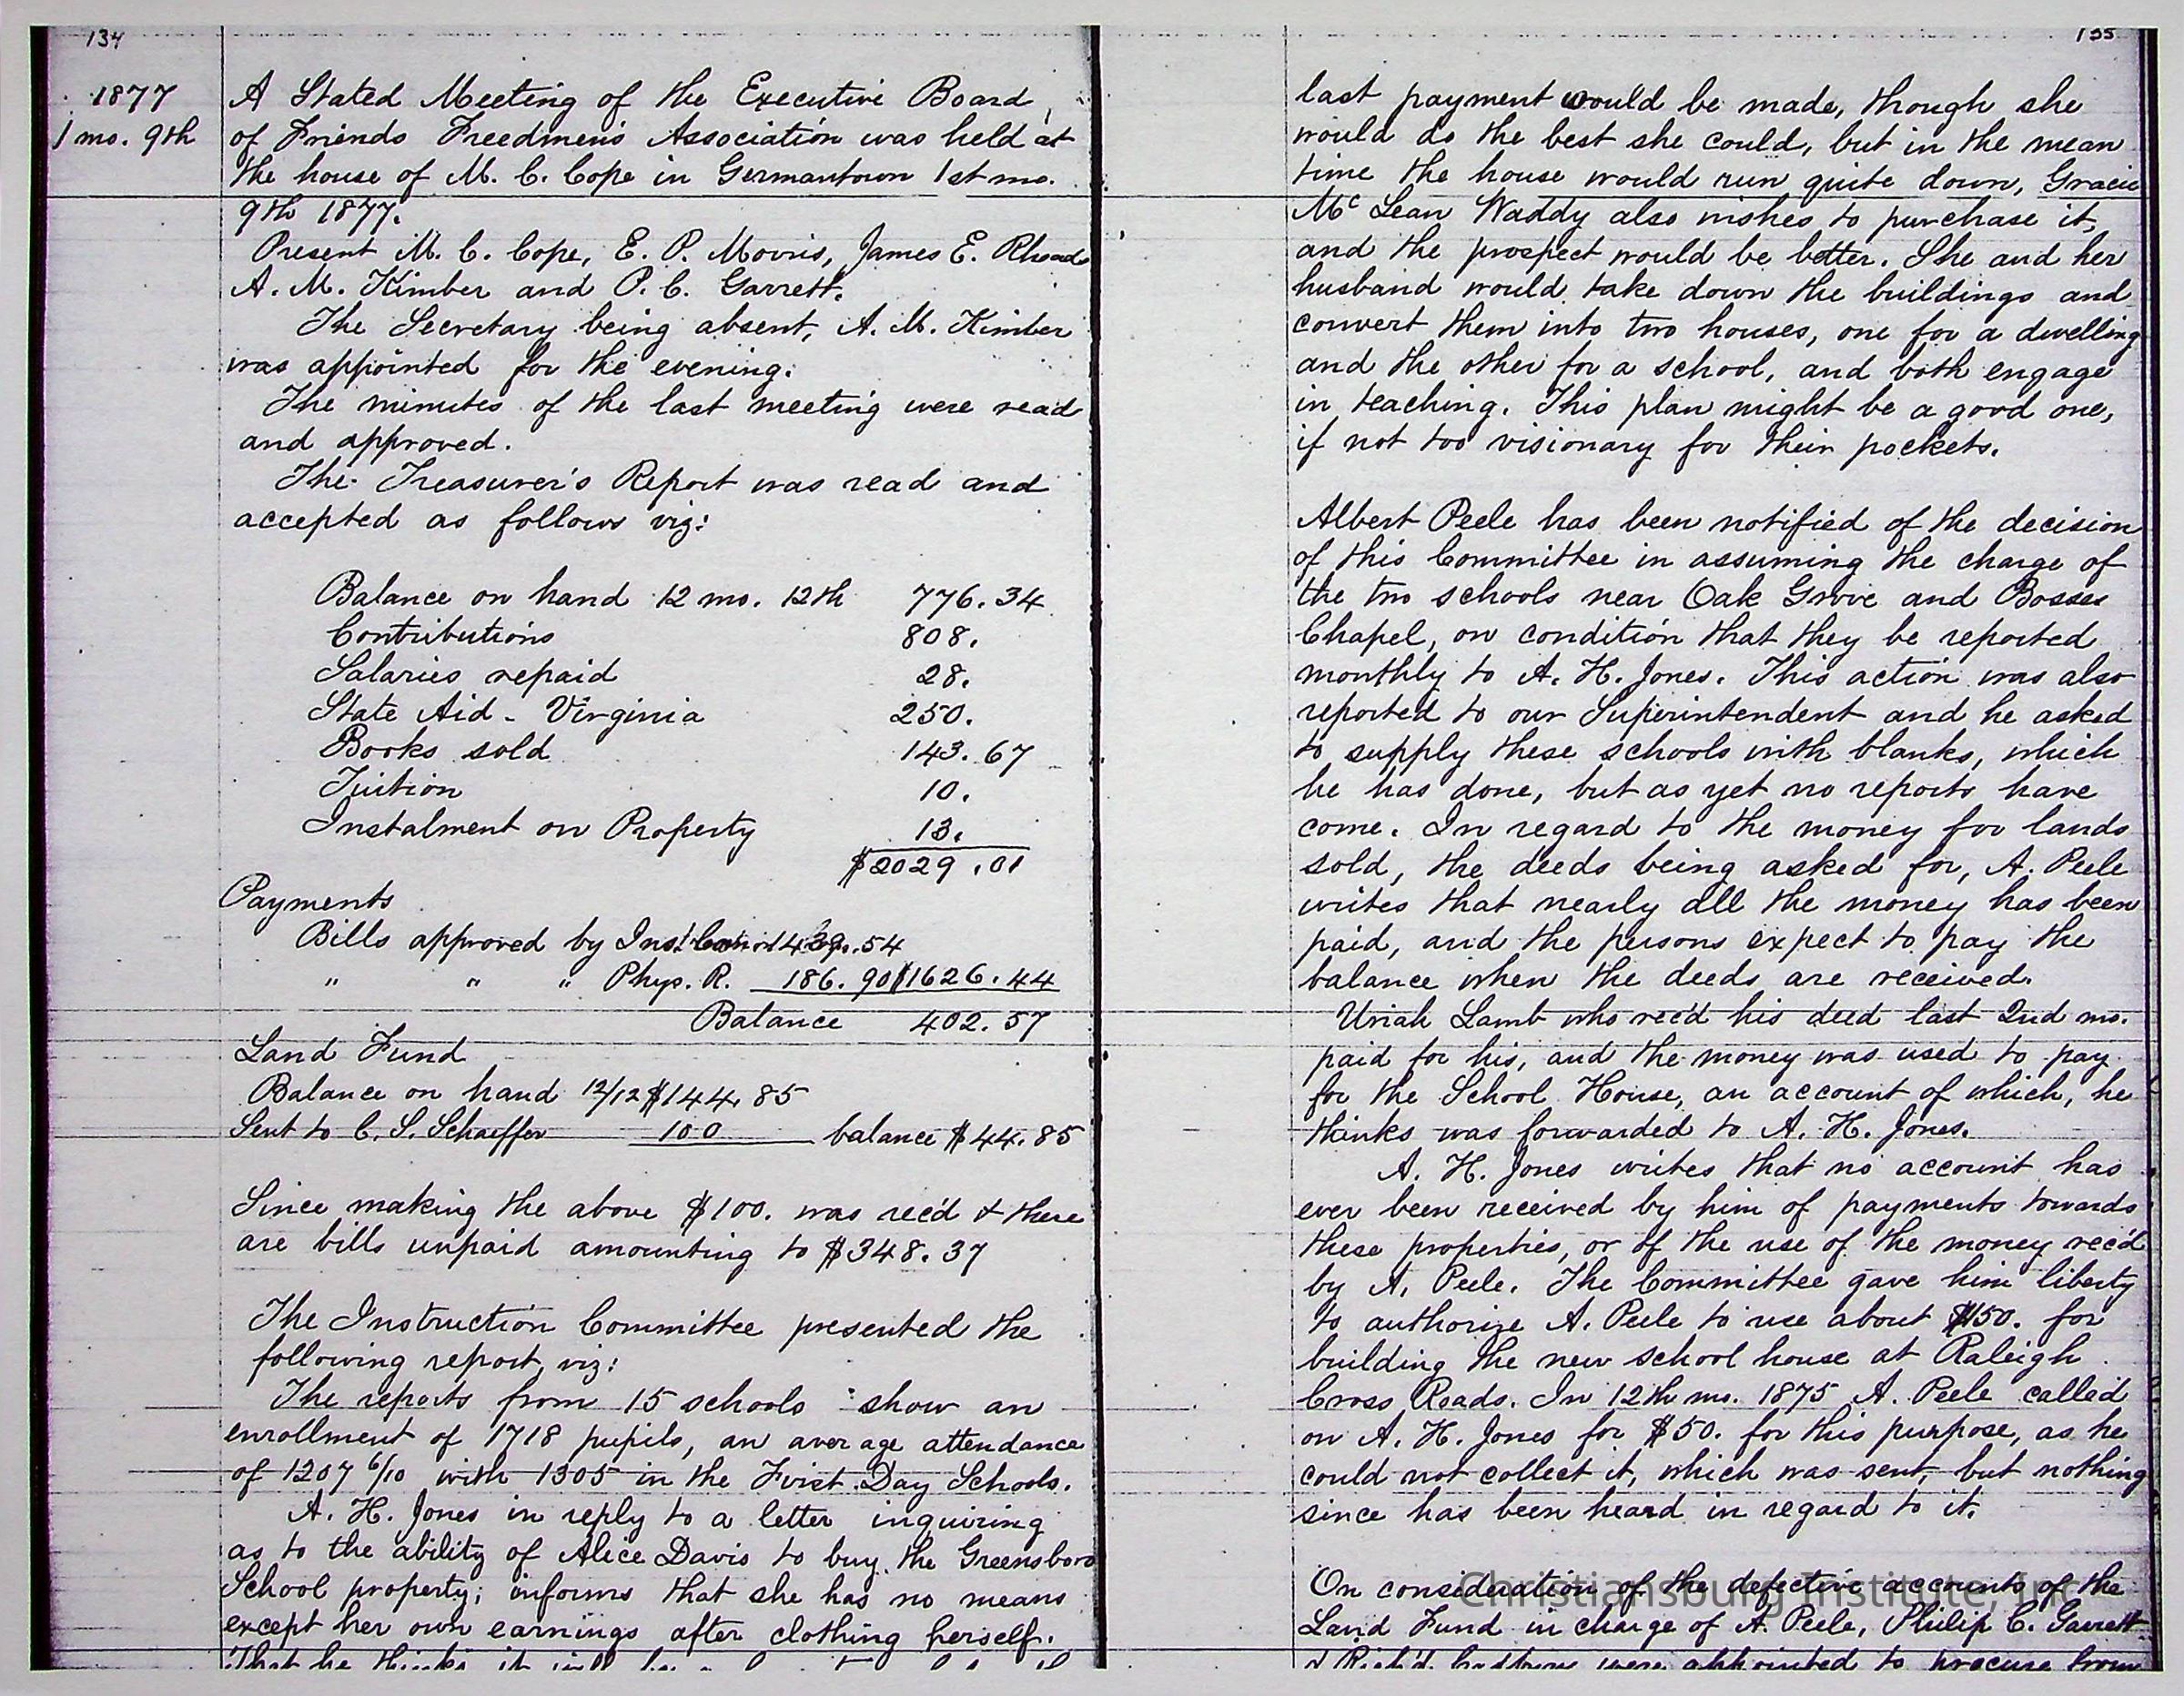 134
1877
1 mo. 9th
A Stated Meeting of the Executive Board
of Friends Freedmen's Association was held at
the house of M. C. Cope in Germantown 1st mo.
9th 1877.
Present M. C. Cope, E. P. Morris, James E. Rhoads
A. M. Kimber and P. C. Garrett.
The Secretary being absent, A. M. Kimber
was appointed for the evening.
The minutes of the last meeting were read
and approved.
The Treasurer's Report was read and
accepted as follows viz:
Balance on hand 12 mo. 12th 776.34
Contributions 808.
Salaries repaid 28.
State Aid - Virginia 250.
Books sold 143.67
Tuition 10.
Instalment on Property 13.
$2029.01
Payments
Bills approved by Inst. Com. 1439.54
" " " Phys. R. 186.90 $1626.44
Balance 402.57
Land Fund
Balance on hand 12/12 $144.85
Sent to C. S. Schaeffer 100 balance $44.85
Since making the above $100. was rec'd & there
are bills unpaid amounting to $348.37
The Instruction Committee presented the
following report, viz:
The reports from 15 schools show an
enrollment of 1718 pupils, an average attendance
of 1207 6/10 with 1305 in the First Day Schools.
A. H. Jones in reply to a letter inquiring
as to the ability of Alice Davis to buy the Greensboro
School property; informs that she has no means
except her own earnings after clothing herself.
That he thinks it will be
135
last payment would be made, though she
would do the best she could, but in the mean
time the house would run quite down, Gracie
McLean Waddy also wishes to purchase it,
and the prospect would be better. She and her
husband would take down the buildings and
convert them into two houses, one for a dwelling
and the other for a school, and both engage
in teaching. This plan might be a good one,
if not too visionary for their pockets.
Albert Peele has been notified of the decision
of this Committee in assuming the charge of
the two schools near Oak Grove and Bosses
Chapel, on condition that they be reported
monthly to A. H. Jones. This action was also
reported to our Superintendent and he asked
to supply these schools with blanks, which
he has done, but as yet no reports have
come. In regard to the money for lands
sold, the deeds being asked for, A. Peele
writes that nearly all the money has been
paid, and the persons expect to pay the
balance when the deeds are received.
Uriah Lamb who rec'd his deed last 2nd mo.
paid for his, and the money was used to pay
for the School House, an account of which, he
thinks was forwarded to A. H. Jones.
A. H. Jones writes that no account has
ever been received by him of payments towards
these properties, or of the use of the money rec'd
by A. Peele. The Committee gave him liberty
to authorize A. Peele to use about $150. for
building the new school house at Raleigh
Cross Roads. In 12th mo. 1875 A. Peele called
on A. H. Jones for $50. for this purpose, as he
could not collect it, which was sent, but nothing
since has been heard in regard to it.
On consideration of the defective accounts of the
Christiansburg Institute, Inc.
Land Fund in charge of A. Peele, Philip C. Garrett
were appointed to procure from